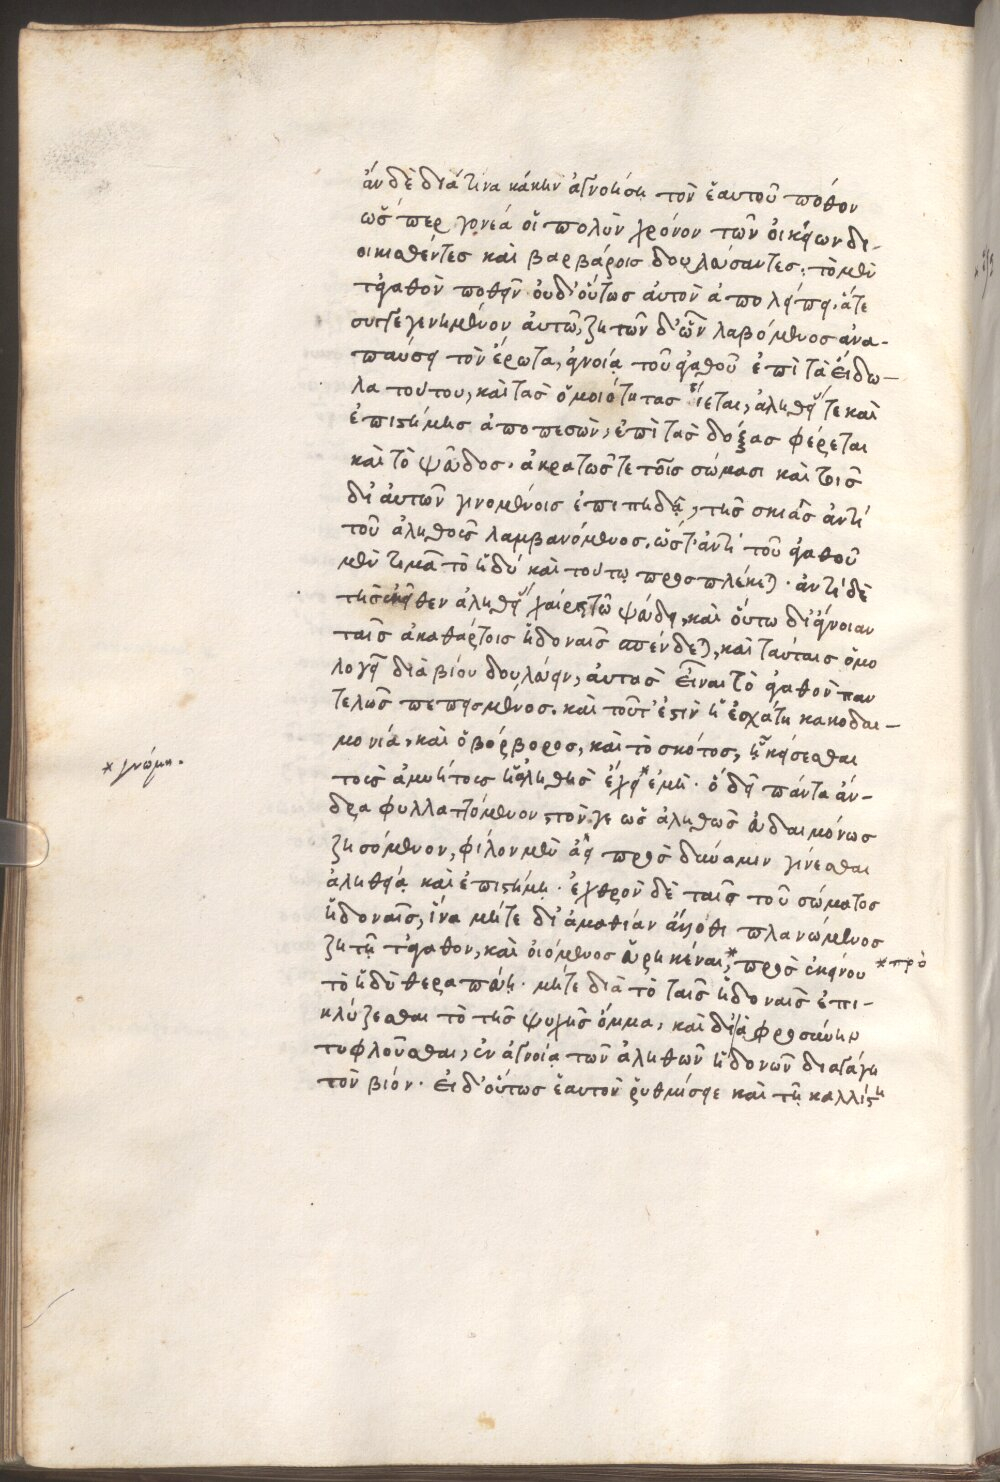 ἀν δὲ διά τινα κάκην ἀγνοήσῃ τὸν ἑαυτοῦ πόθον
ὥσπερ γονέα οἱ πολὺν χρόνον τῶν οἰκείων δι-
οικισθέντες καὶ βαρβάροις δουλεύσαντες, τὸ μὲν
τἀγαθὸν ποθεῖν οὐδ' οὕτως αὐτὸν ἀπολείπει, ἅτε
συγγεγενημένον αὐτῶ, ζητῶν δ' ὧν λαβόμενος ἀνα-
παύσει τὸν ἔρωτα, ἀγνοίᾳ τοῦ ἀγαθοῦ ἐπὶ τὰ εἴδω-
λα τούτου, καὶ τὰς ὁμοιότητας ἵεται, ἀληθείας τε καὶ
ἐπιστήμης ἀποπεσὼν, ἐπὶ τὰς δόξας φέρεται
καὶ τὸ ψεῦδος. ἀκρατῶς τε τοῖς σώμασι καὶ τοῖς
δι' αὐτῶν γινομένοις ἐπιπηδᾷ, τῆς σκιᾶς ἀντὶ
τοῦ ἀληθοῦς λαμβανόμενος. ὥστ' ἀντὶ τοῦ ἀγαθοῦ
μὲν τιμᾶ τὸ ἡδὺ καὶ τούτῳ προσπλέκεται. ἀντὶ δὲ
τῆς ἐκεῖθεν ἀληθείας χαίρει τῶ ψεύδει, καὶ οὕτω δι' ἄγνοιαν
ταῖς ἀκαθάρτοις ἡδοναῖς σπένδεται, καὶ ταύταις ὁμο
λογεῖ διὰ βίου δουλεύειν, αὐτὰς εἶναι τὸ ἀγαθὸν παν
τελῶς πεπεισμένος. καὶ τοῦτ' ἐστὶν ἡ ἐσχάτη κακοδαι-
μονία, καὶ ὁ βόρβορος, καὶ τὸ σκότος, ᾧ κείσεσθαι
τοὺς ἀμυήτους ἡ ἀληθὴς ἔχει * ἐμὴ. ὃ δεῖ πάντα ἄν-
* γνώμη.
δρα φυλλαττόμενον, τόν γε ὡς ἀληθῶς εὐδαιμόνως
ζησόμενον, φίλον μὲν ἀεὶ πρὸς δύναμιν γίνεσθαι
ἀληθείᾳ καὶ ἐπιστήμῃ. ἐχθρὸν δὲ ταῖς τοῦ σώματος
ἡδοναῖς, ἵνα μήτε δι' ἀμαθίαν πλανώμενος
ζητῇ τἀγαθον, καὶ οἰόμενος εὑρηκέναι, * πρὸς ἐκείνου
* πρὸ
τὸ ἡδὺ θεραπεύῃ. μήτε διὰ τὸ ταῖς ἡδοναῖς ἐπι-
κλύζεσθαι τὸ τῆς ψυχῆς ὄμμα, καὶ δι' ἀφροσύνην
τυφλοῦσθαι, ἐν ἀγνοίᾳ τῶν ἀληθῶν ἡδονῶν διαγάγῃ
τὸν βίον. εἰ δ' οὕτως ἑαυτὸν ῥυθμίσειε καὶ τῇ καλλίστη